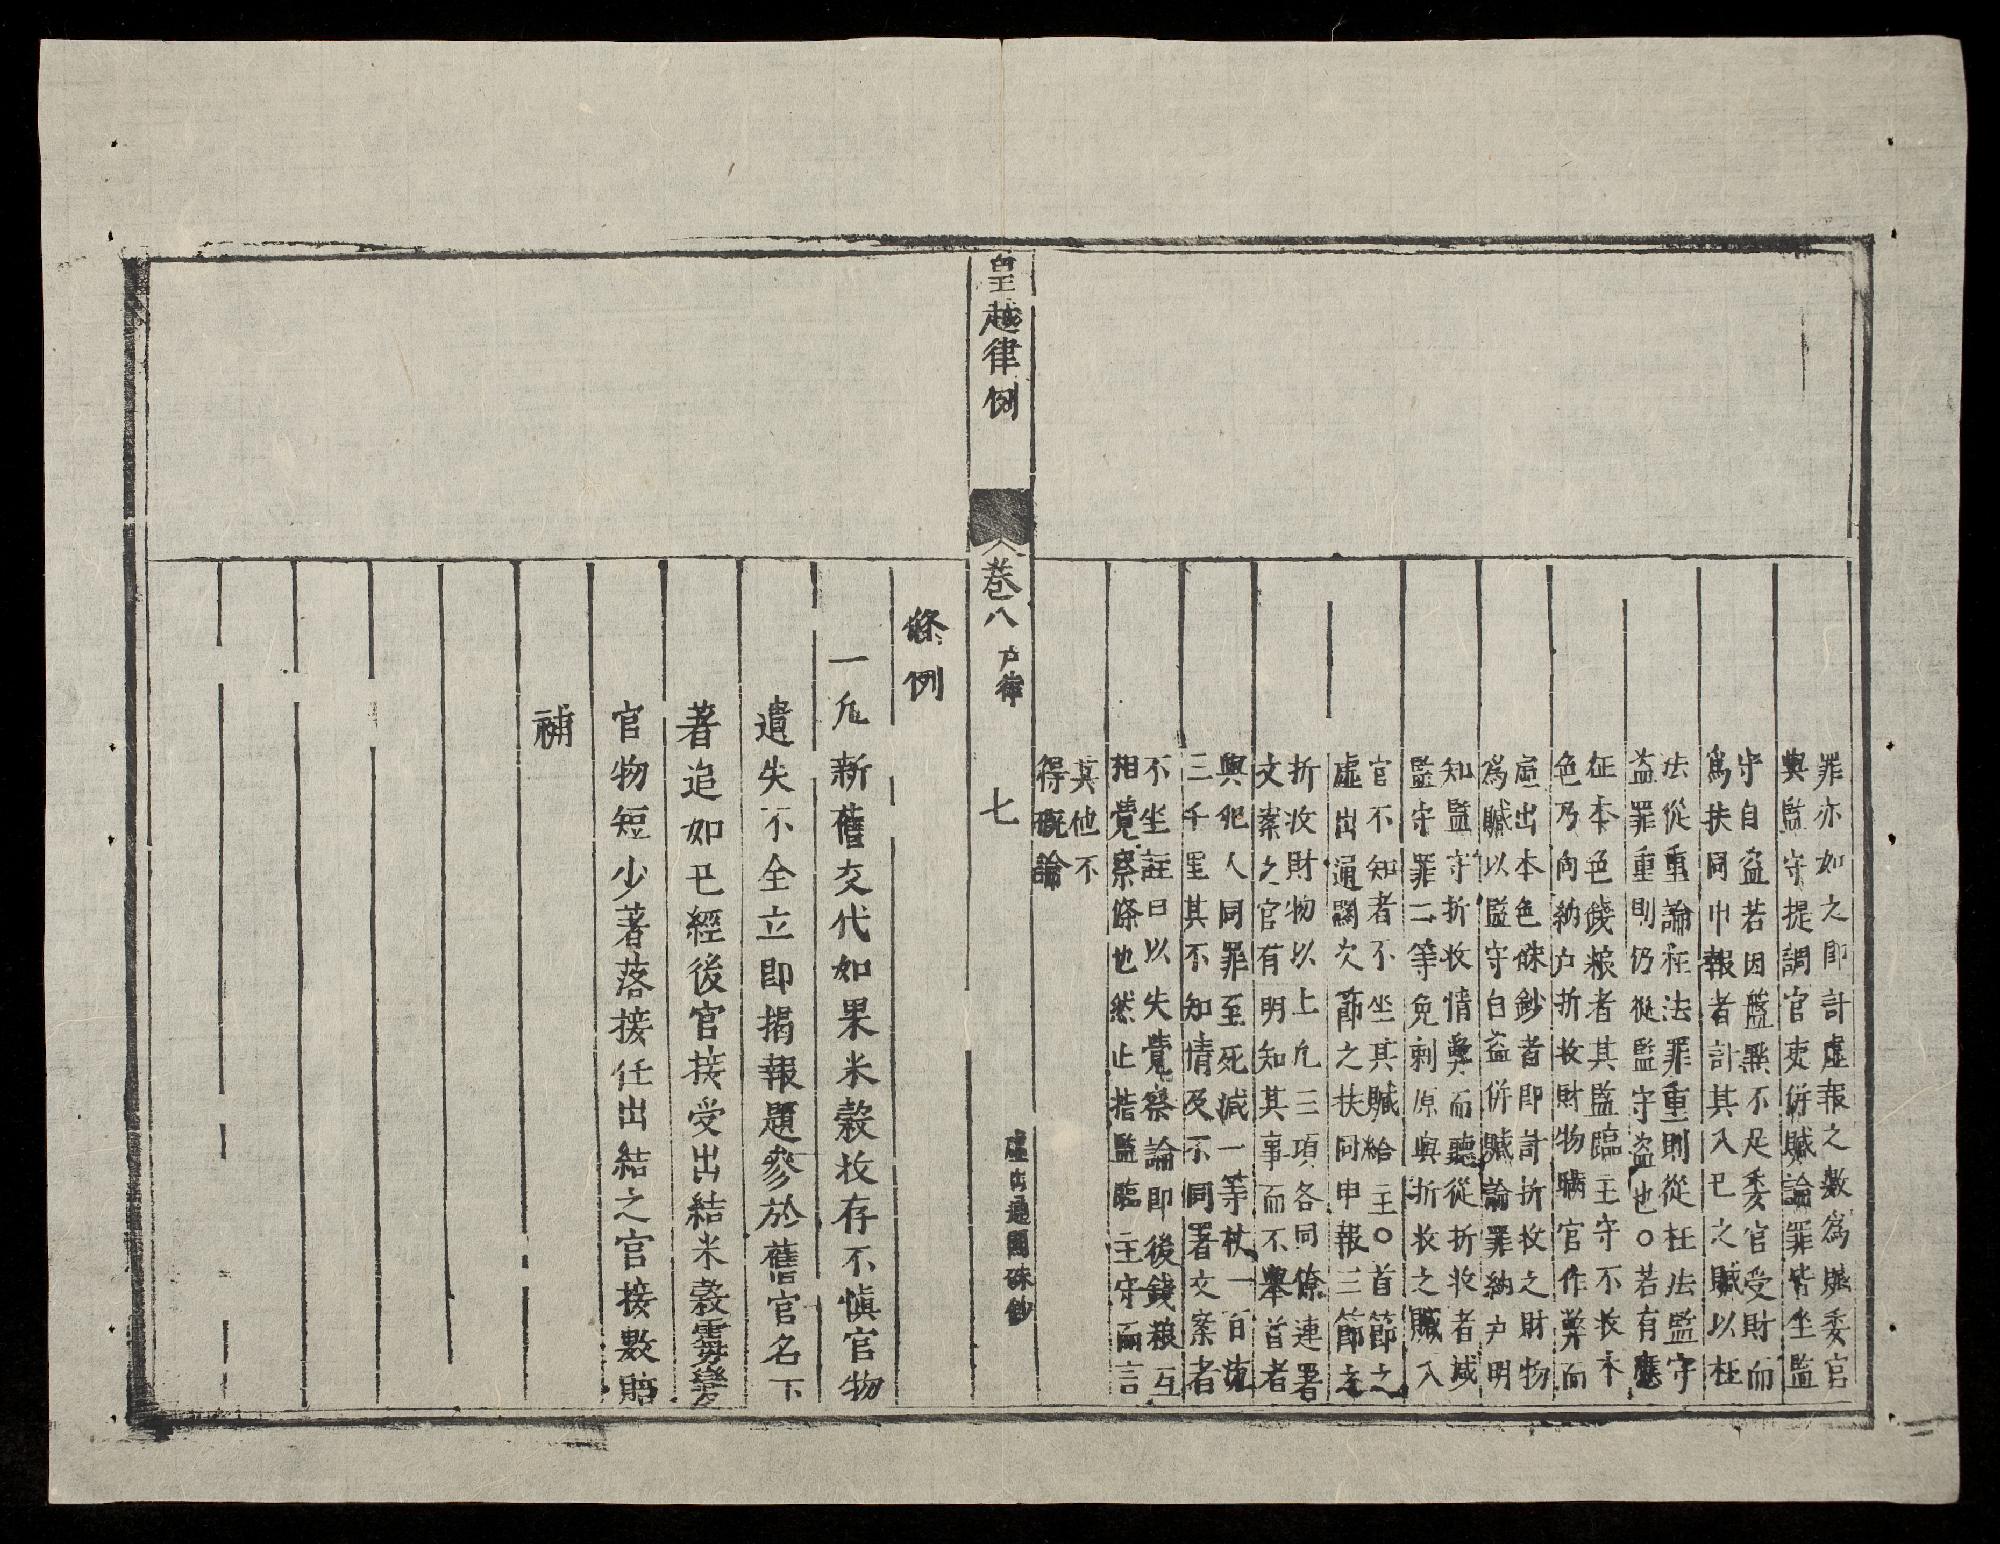 罪亦如之即計虛報之數爲贓委官
與監守提調官吏併贓論罪皆坐監
守自盜若因監點不足委官受財而
爲扶同巾報者計其入已之贓以枉
法從重論枉法罪重則從枉法監守
盜罪重則仍從監守盜也○若有應
征本色錢粮者其監臨主守不收本
色乃向納户折收財物瞞官作弊而
虛出本色硃鈔者即計折收之財物
爲贓以監守自盜併贓論罪納户明
知監守折收情弊而聽從折收者减
監守罪二等免刺原與折收之贓入
官不知者不坐其贓給主○首節之
虛出通關次節之扶同申報三節之
折收財物以上凢三項各同僚連署
文案之官有明知其事而不舉首者
與犯人同罪至死减一等杖一百流
三千里其不知情及不同署文案者
不坐註曰以失覺察論即後錢粮互
相覺察條也然止指監臨主守而言
其他不
得概論
皇越律例
卷八 户律
七
虛出通關硃鈔
條例
一凢新舊交代如果米榖收存不慎官物
遺失不全立即揭報題參於舊官名下
著追如已經後官接受出結米榖霉變
官物短少著落接任出結之官接數賠
補